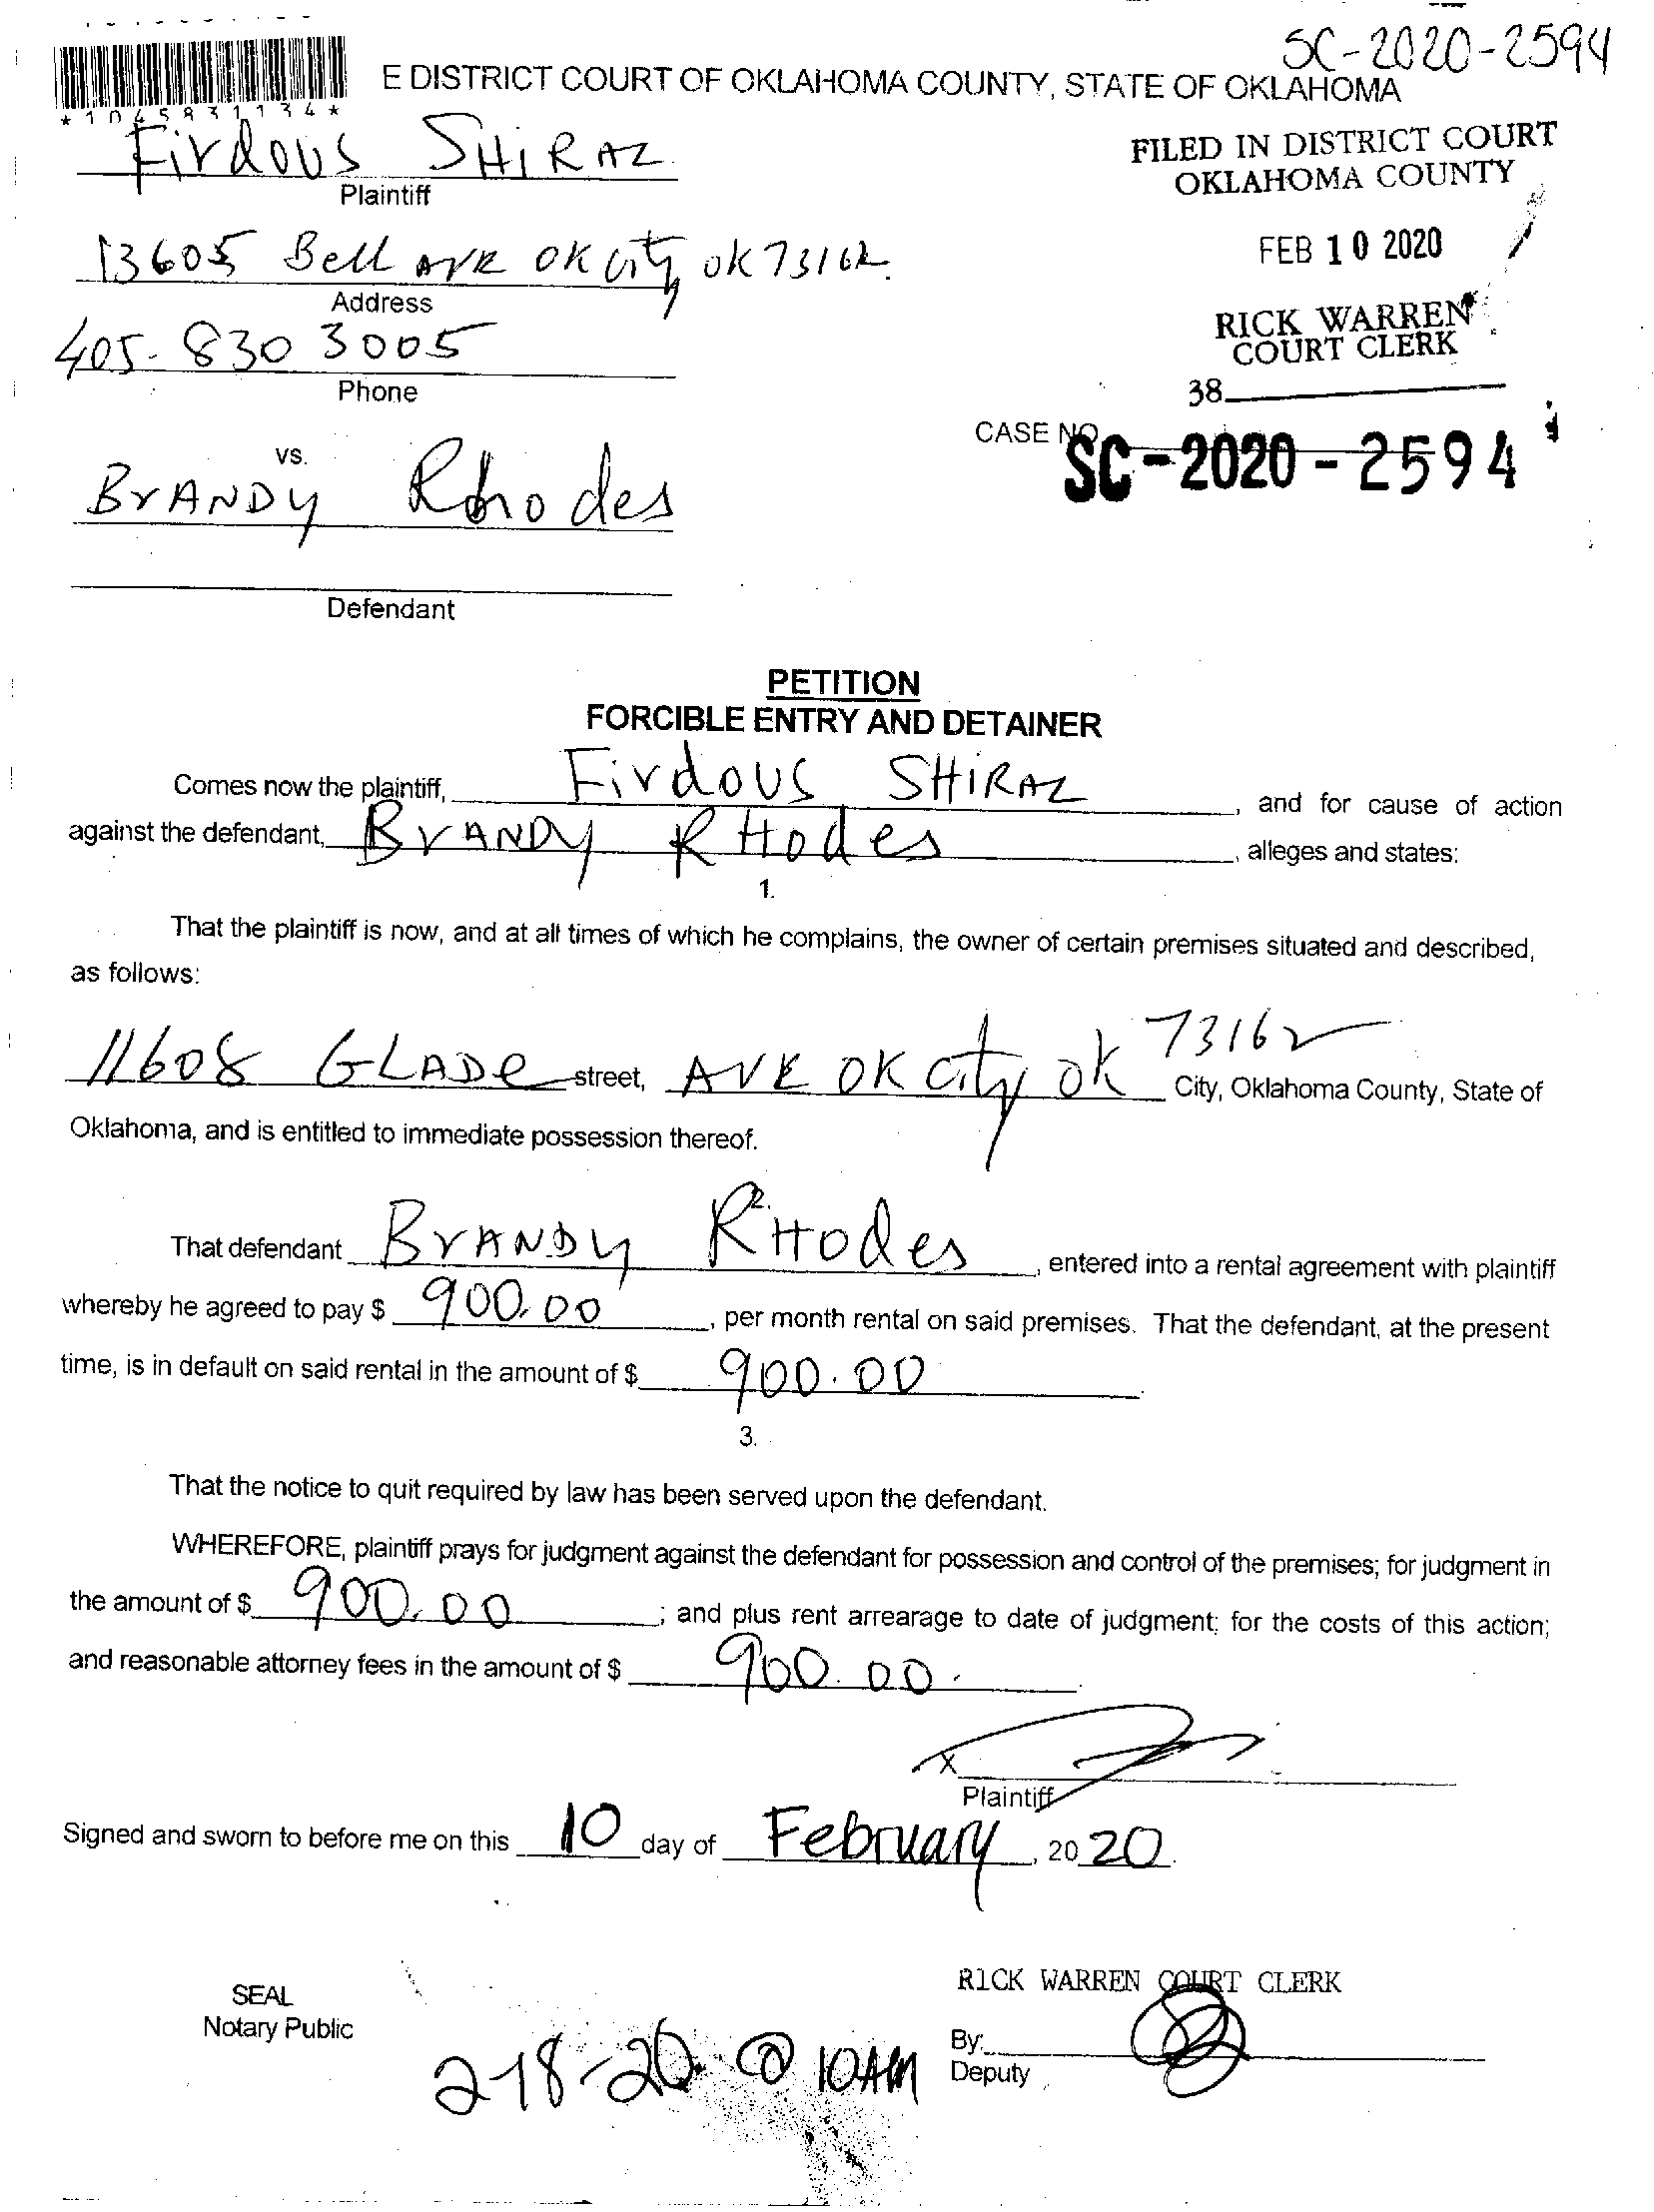 SC-2020-2594
E DISTRICT COURT OF OKLAHOMA COUNTY, STATE OF OKLAHOMA
Firdous SHiRAZ
Plaintiff
FILED IN DISTRICT COURT
OKLAHOMA COUNTY
13605 Bell AVE OK City OK 73162.
Address
FEB 10 2020
405-830 3005
Phone
RICK WARREN
COURT CLERK
38
CASE NO. SC-2020-2594
vs.
BrANDy Rhodes
Defendant
PETITION
FORCIBLE ENTRY AND DETAINER
Comes now the plaintiff, Firdous SHiRAZ, and for cause of action
against the defendant, BrANDy RHodes, alleges and states:
1.
That the plaintiff is now, and at all times of which he complains, the owner of certain premises situated and described,
as follows:
11608 GLADe street, AVE OK City OK 73162 City, Oklahoma County, State of
Oklahoma, and is entitled to immediate possession thereof.
2.
That defendant BrANDy RHodes, entered into a rental agreement with plaintiff
whereby he agreed to pay $ 900.00, per month rental on said premises. That the defendant, at the present
time, is in default on said rental in the amount of $ 900.00
3.
That the notice to quit required by law has been served upon the defendant.
WHEREFORE, plaintiff prays for judgment against the defendant for possession and control of the premises; for judgment in
the amount of $ 900.00; and plus rent arrearage to date of judgment; for the costs of this action;
and reasonable attorney fees in the amount of $ 900.00.
X
Plaintiff
Signed and sworn to before me on this 10 day of February, 2020.
SEAL
Notary Public
RICK WARREN COURT CLERK
By:
Deputy
2-18-20 @ 10AM